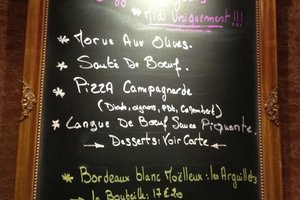 Midi Uniquement !!!
* Morue Aux Olives.
* Sauté De Bœuf.
* Pizza Campagnarde
(Dinde, oignons, pdt, Camembert)
* Langue De Bœuf Sauce Piquante.
→ Desserts: Voir Carte ←
* Bordeaux blanc Moëlleux: les Arguillets
→ la Bouteille: 17€20